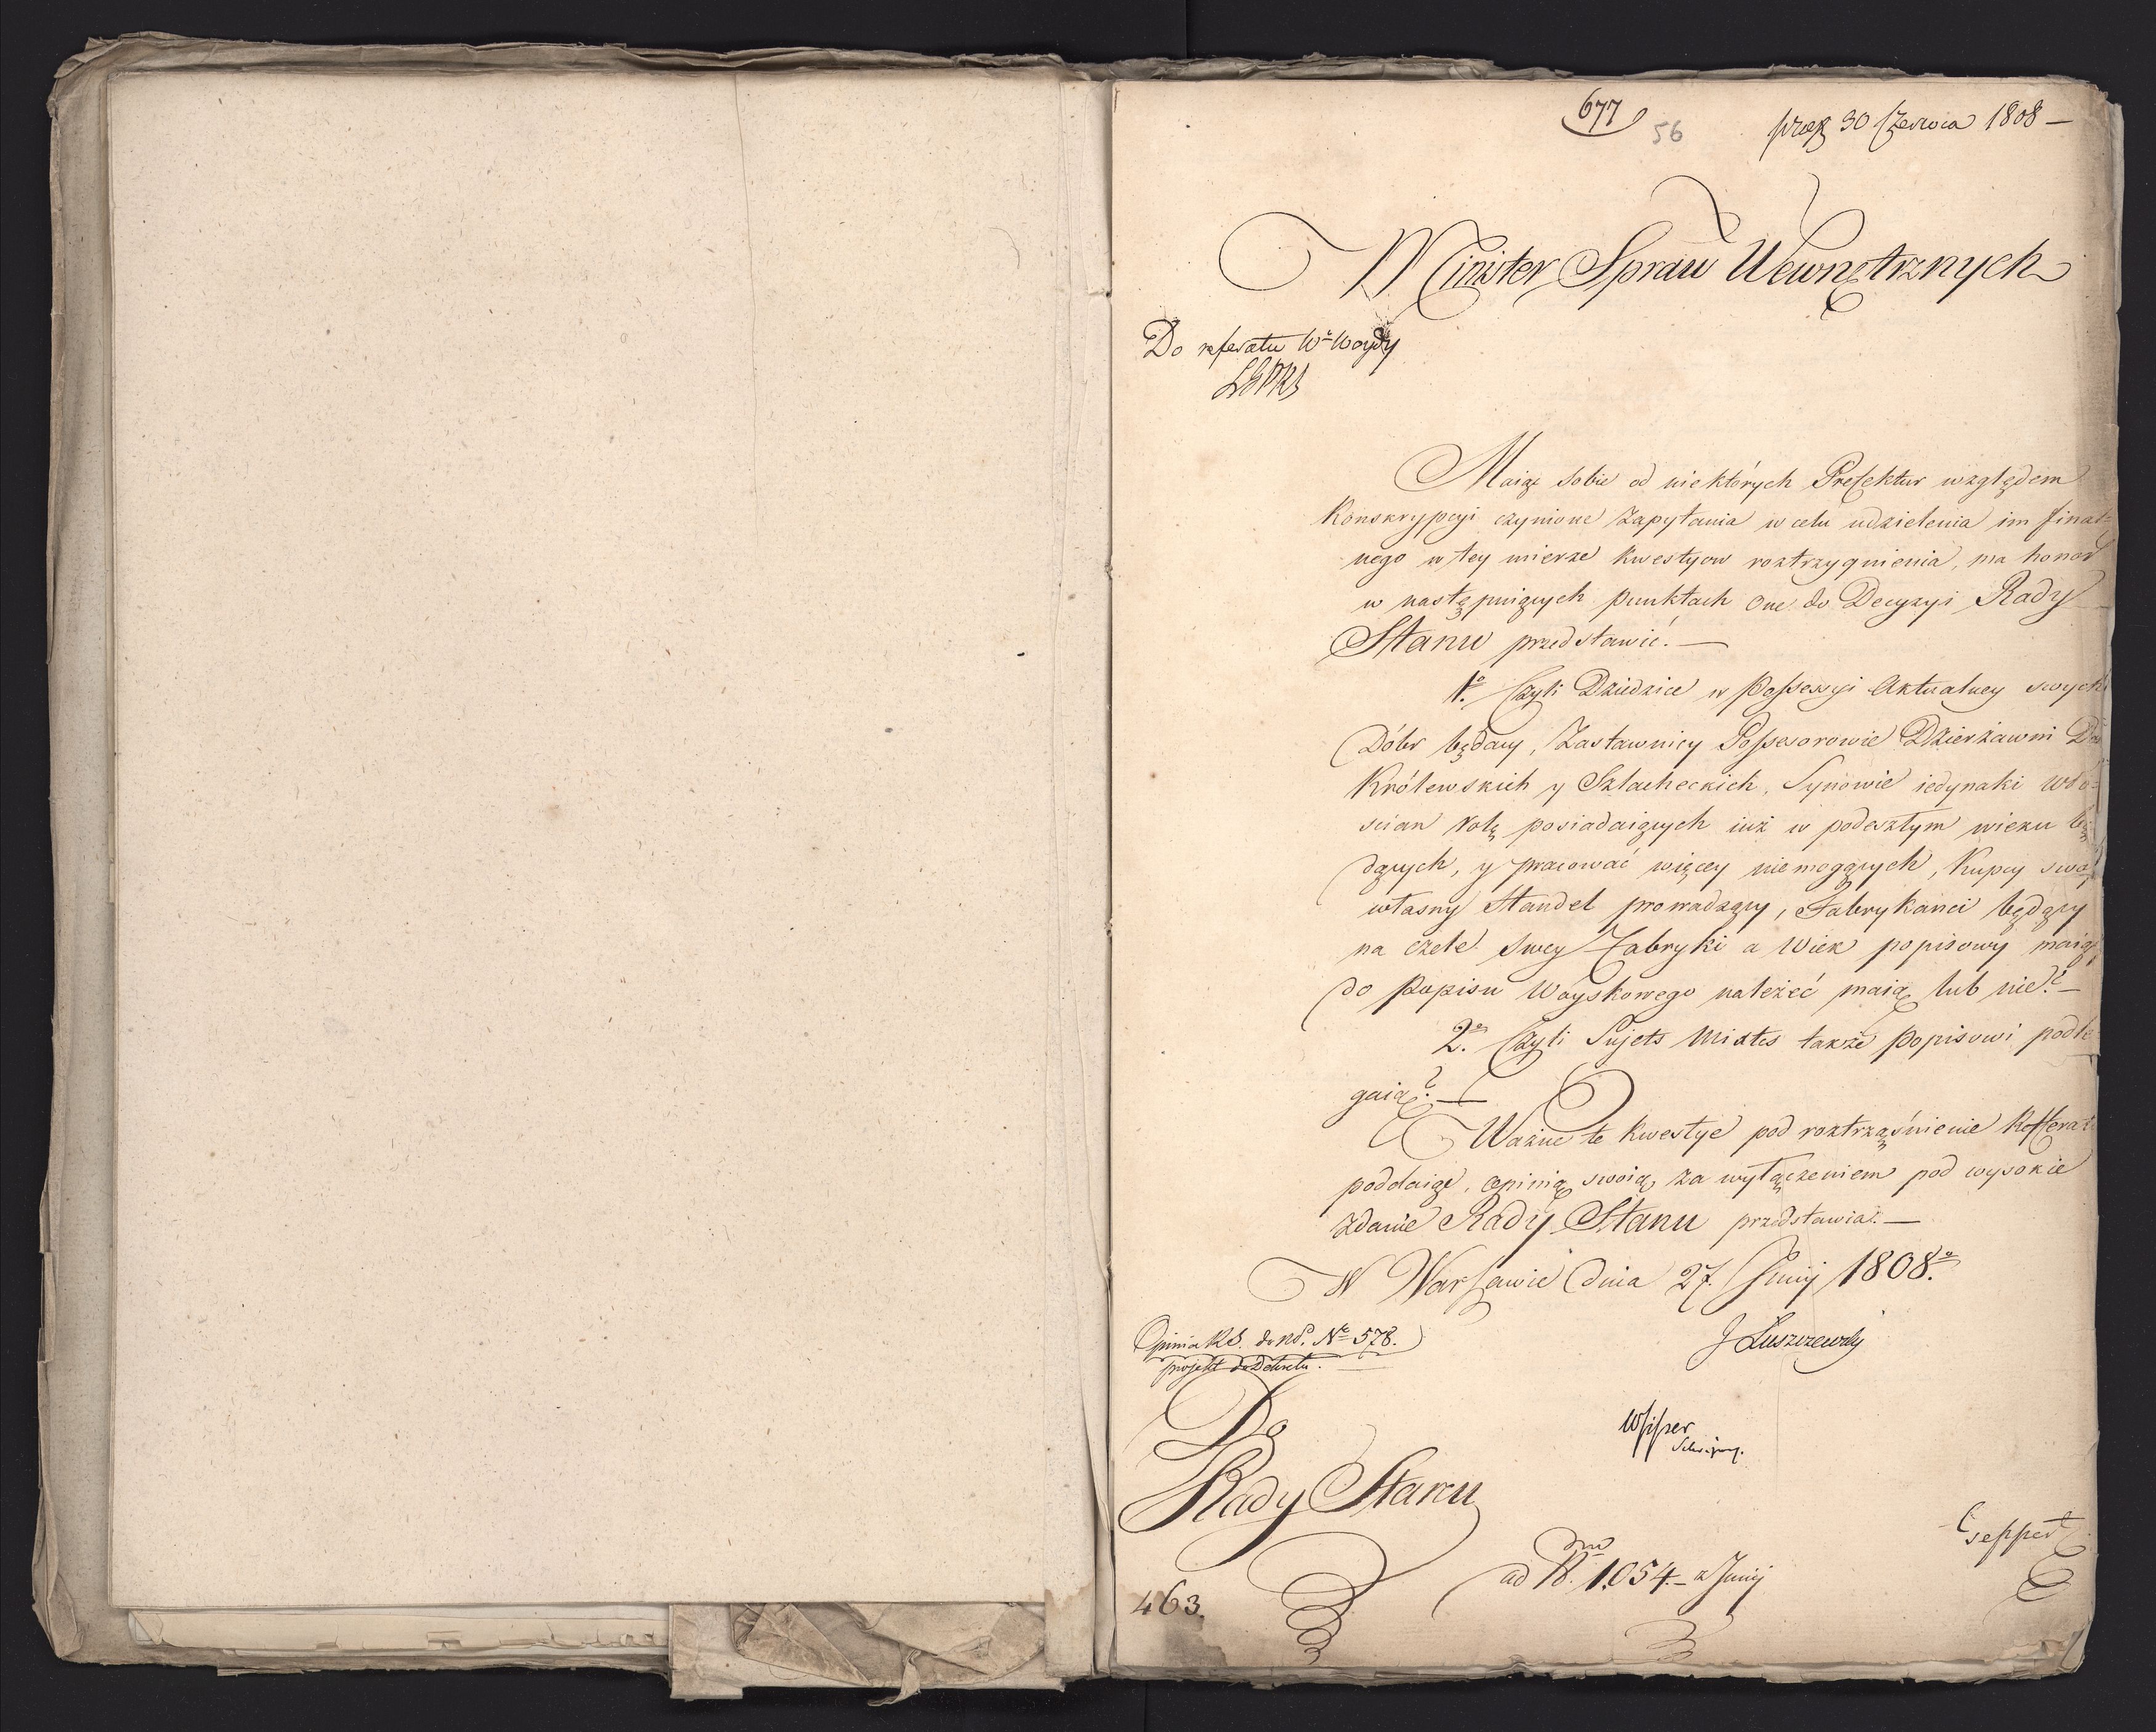 677
56
30 Czerwca 1808 —
Minister Spraw Wewnętrznych
Do referatu Wo Woydy
Maiąc sobie od niektórych Prefektur względem
Konskrypcyi czynione zapytania w celu udzielenia im final=
nego w tey mierze kwestyow roztrzygnienia, ma honor
w następuiących punktach one do Decyzyi Rady
Stanu przedstawić. —
1o. Czyli Dziedzice w Possessyi Aktualney swych
Dóbr będący, Zastawnicy Possesorowie Dzierżawni
Królewskich y Szlacheckich, Synowie iedynaki wło=
scian rolę posiadaiących iuż w podeszłym wieku bę
dących, y pracować więcey niemogących, Kupcy swoy
własny Handel prowadzący, Fabrykanci będący
na czele swey Fabryki a wiek popisowy maiąc
do popisu Woyskowego należeć maią lub nie? —
2o. Czyli Sujets Mixtes także popisowi podle
gaią? —
Ważne te kwestye pod roztrząśnienie
poddaiąc, opinią swoią za wyłączeniem pod wysokie
zdanie Rady Stanu przedstawia. —
W Warszawie dnia 27. Junij 1808o.
J Łuszczewski
Opinia RS. do Nd. No 578.
projekt do Dekretu.
Do
Rady Stanu
ad N. 1,054. — z Junij
463.